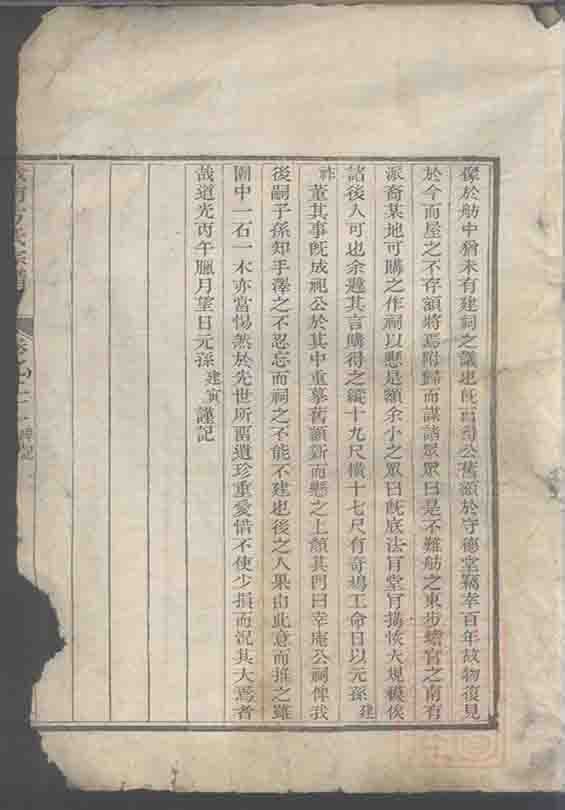 像於舫中猶未有建祠之議也既而得公舊額於守德堂竊幸百年故物復見
於今而屋之不存額將焉附歸而謀諸眾眾曰是不難舫之東步蟾宮之南有
派裔某地可購之作祠以懸是額余小之眾曰旣底法肯堂肯搆恢大規模俟
諸後人可也余韙其言購得之縱十九尺橫十七尺有奇鳩工命日以元孫建
祚董其事旣成祀公於其中重摹舊額新而懸之上顏其門曰幸庵公祠俾我
後嗣子孫知手澤之不忍忘而祠之不能不建也後之人果由此意而推之雖
園中一石一木亦當惕然於先世所畱遺珍重愛惜不使少損而況其大焉者
哉道光丙午臘月望日元孫建寅謹記
方氏宗譜
碑記